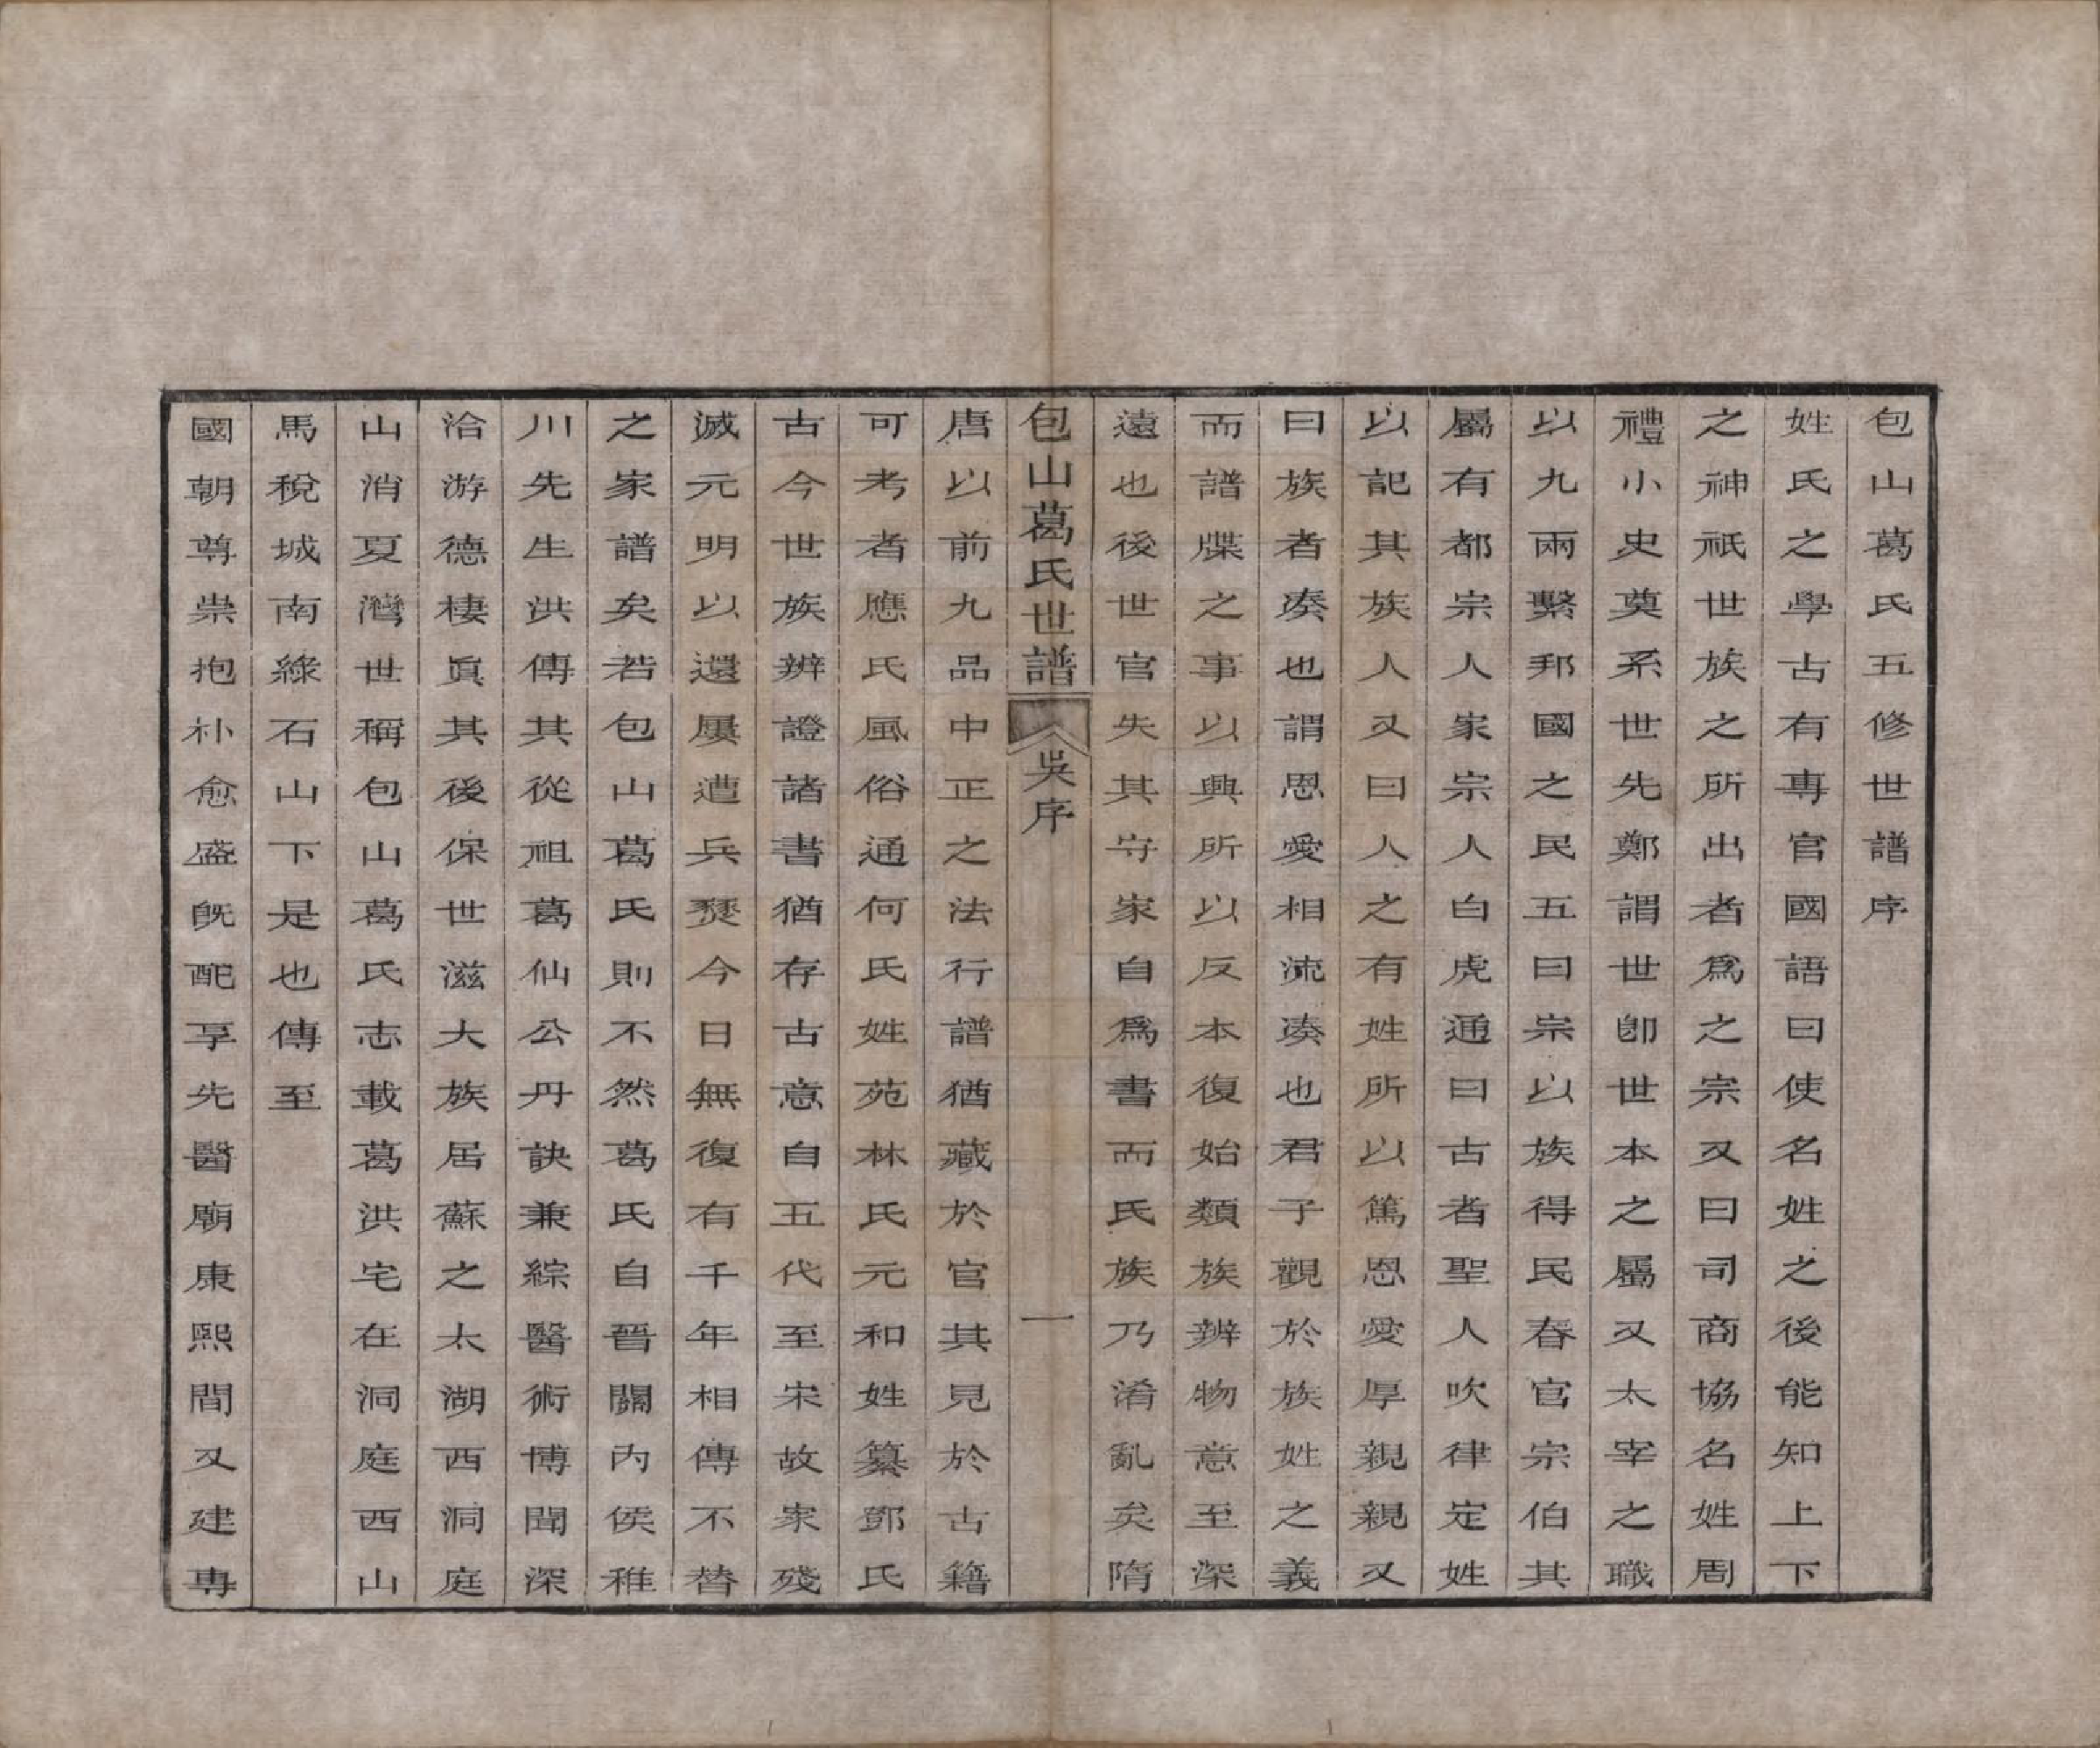 包山葛氏五修世譜序
姓氏之學古有專官國語曰使名姓之後能知上下
之神祇世族之所出者爲之宗又曰司商協名姓周
禮小史奠系世先鄭謂世卽世本之屬又太宰之職
以九兩繫邦國之民五曰宗以族得民春官宗伯其
屬有都宗人家宗人白虎通曰古者聖人吹律定姓
以記其族人又曰人之有姓所以篤恩愛厚親親又
曰族者湊也謂恩愛相流湊也君子觀於族姓之義
而譜牒之事以興所以反本復始類族辨物意至深
遠也後世官失其守家自爲書而氏族乃淆亂矣隋
包山葛氏世譜 吳序 一
唐以前九品中正之法行譜猶藏於官其見於古籍
可考者應氏風俗通何氏姓苑林氏元和姓纂鄧氏
古今世族辨證諸書猶存古意自五代至宋故家殘
滅元明以還屢遭兵燹今日無復有千年相傳不替
之家譜矣若包山葛氏則不然葛氏自晉關內侯稚
川先生洪傳其從祖葛仙公丹訣兼綜醫術博聞深
洽游德棲眞其後保世滋大族居蘇之太湖西洞庭
山消夏灣世稱包山葛氏志載葛洪宅在洞庭西山
馬稅城南綠石山下是也傳至
國朝尊崇抱朴愈盛旣配享先醫廟康熙間又建專